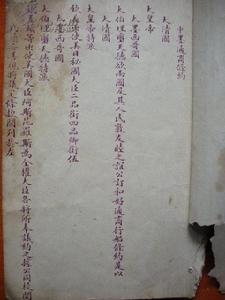 中墨通商條約
大清國
大皇帝
大墨西哥國
大伯理璽天德欲兩國及其人民敦友睦之誼公訂和好通商行船條約是以
大清國
大皇帝特派
欽差出使美日秘國大臣二品銜四品卿銜伍
大墨西哥國
大伯理璽天德特派
使美國大臣阿斯芘羅斯為全權大臣各將所奉議約之據公同校閱
現將議定條款開列於左